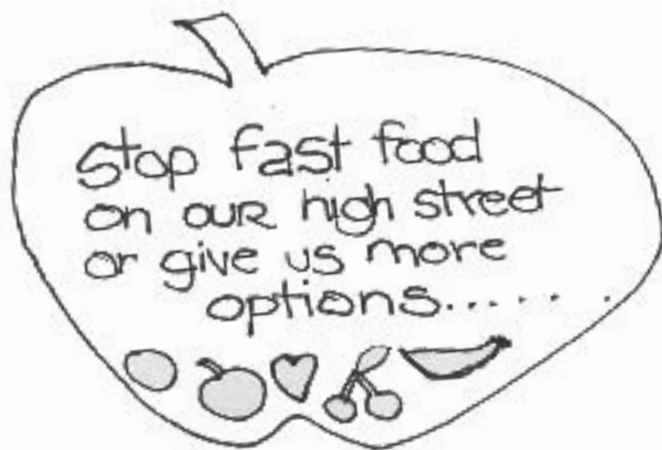 stop fast food
on our high street
or give us more
options.......